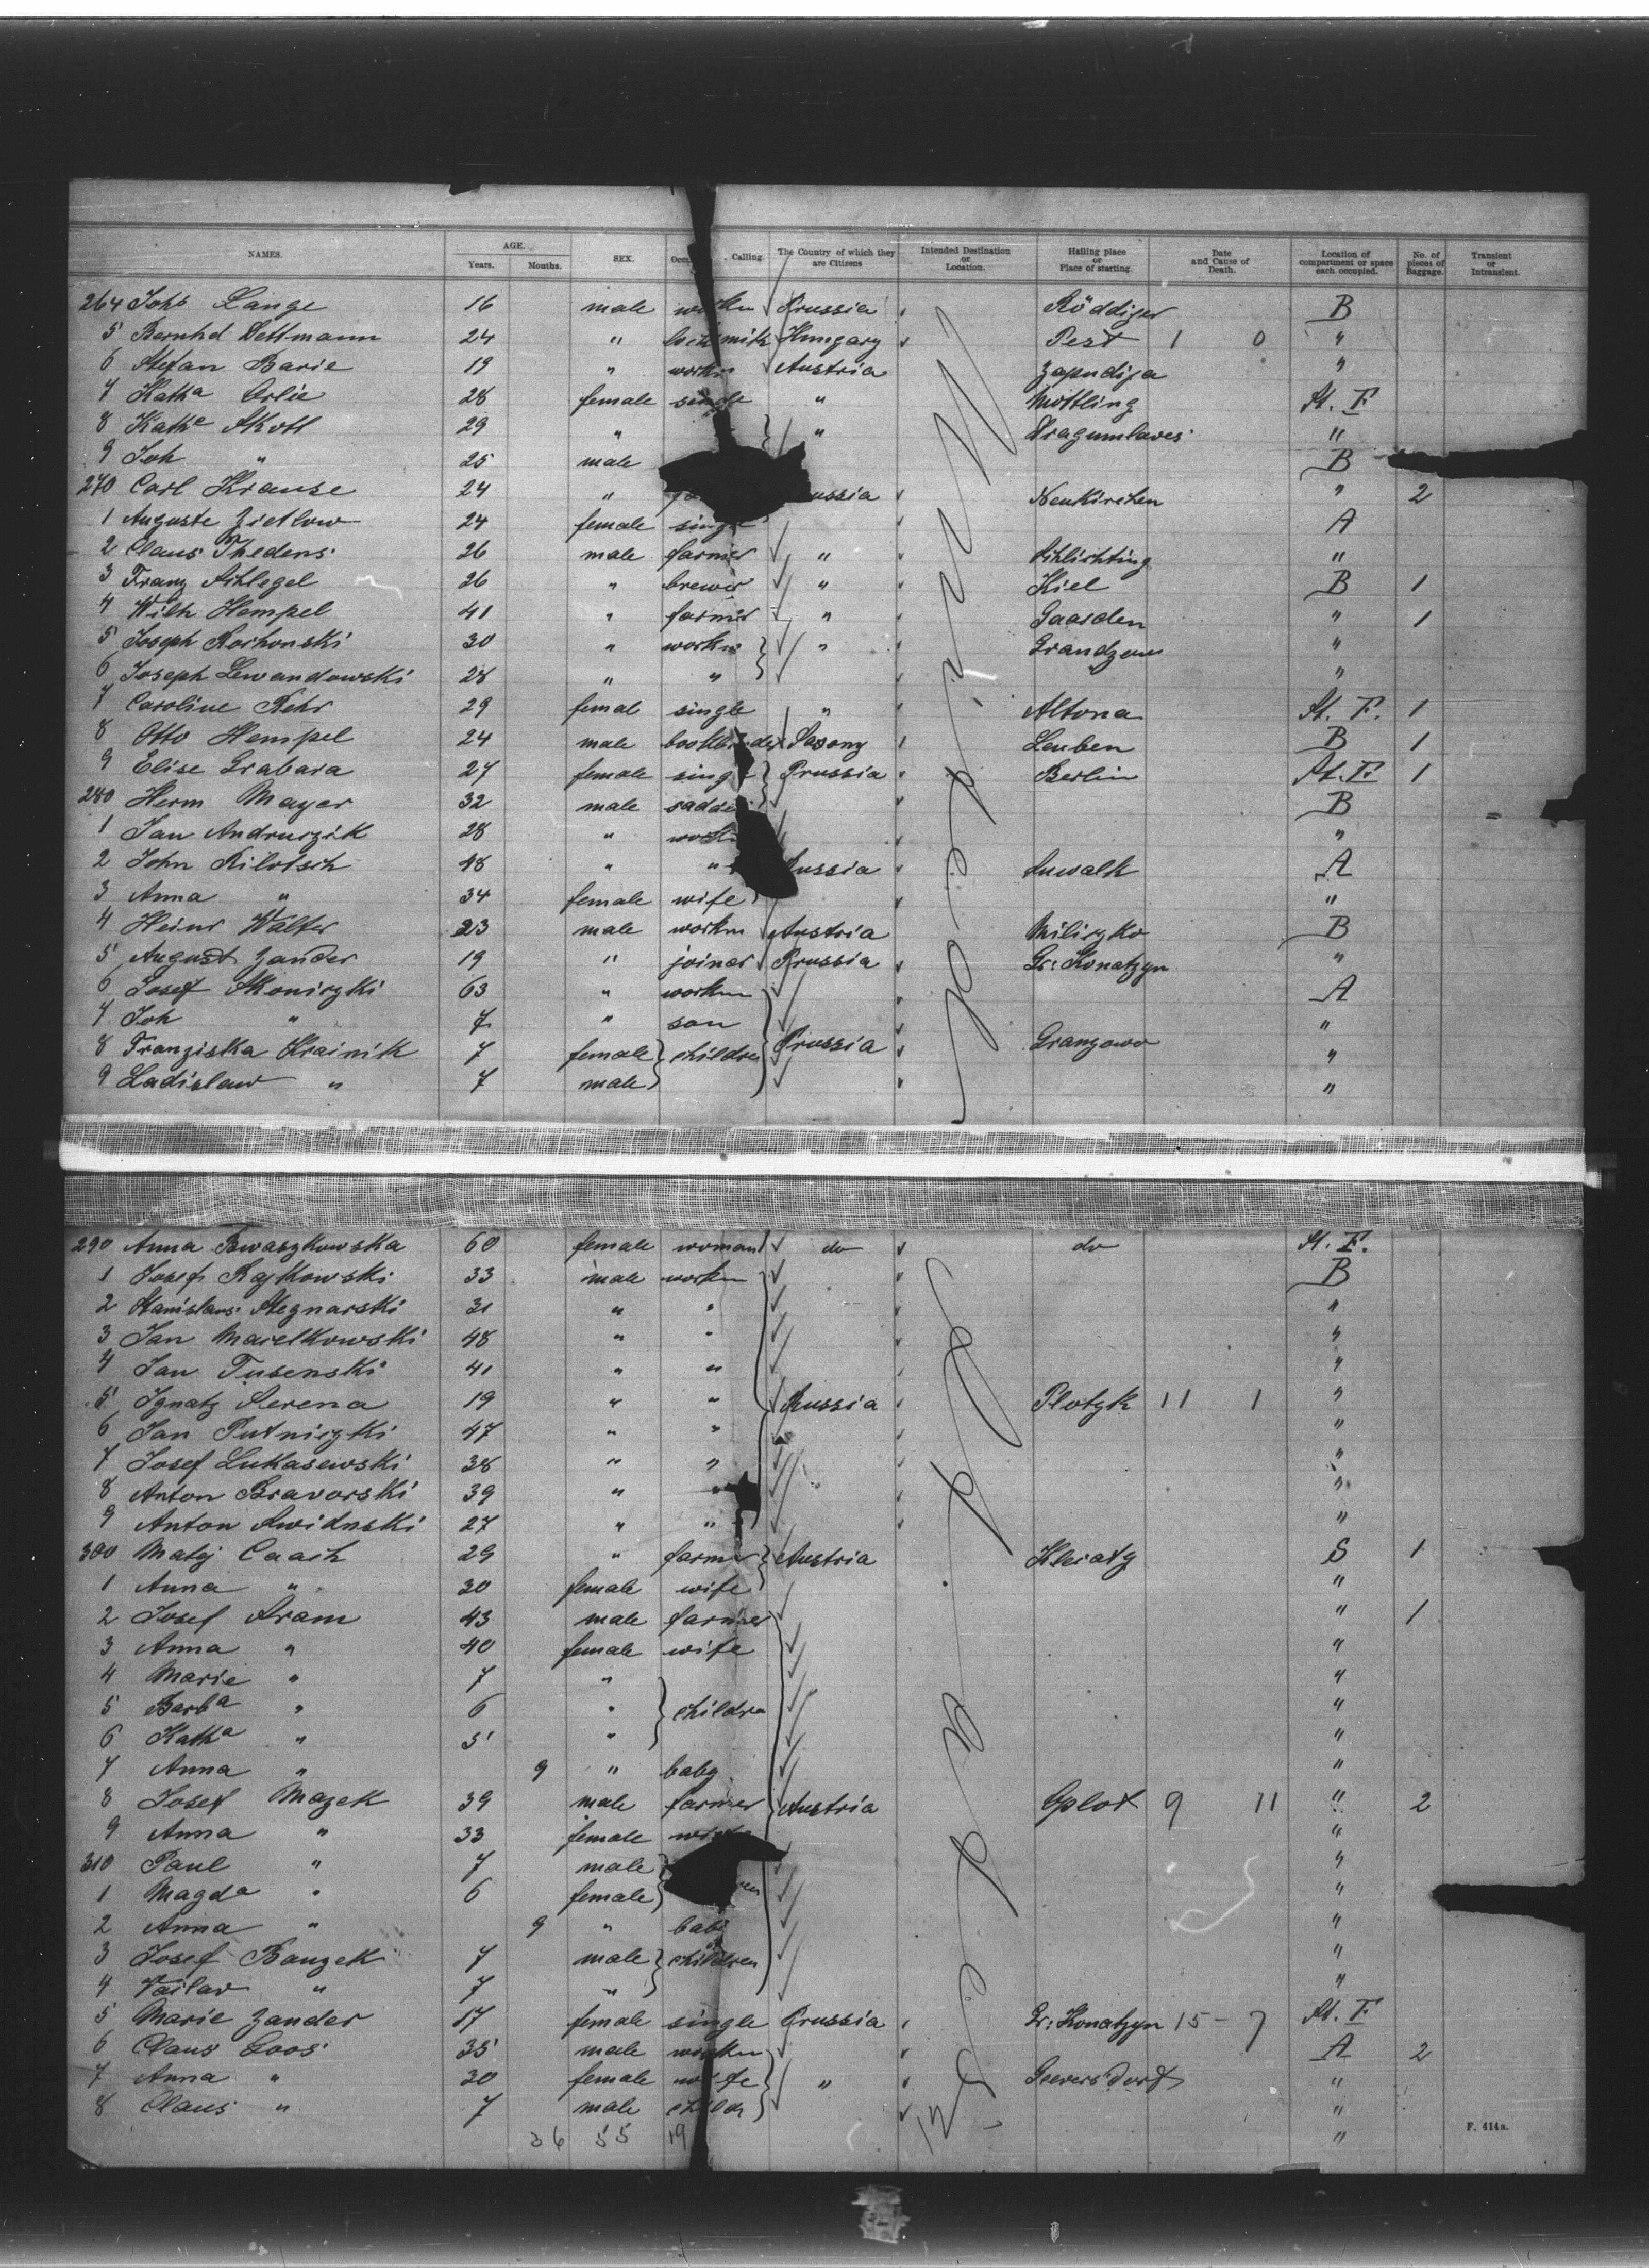 NAMES. AGE. Years. Months. SEX. Calling. The Country of which they are Citizens Intended Destination or Location. Hailing place or Place of starting. Date and Cause of Death. Location of compartment or space each occupied. No. of pieces of Baggage. Transient or Intransient.
264 Johs Lange 16 male Prussia Röddiger B
5 Bernhd Dettmann 24 " Hungary Pest 1 0 "
6 Stefan Barie 19 " workm Austria Zapudija "
7 Katha Orlie 28 female single " Mottling St. F.
8 Kathe Skoll 29 " " "
9 Joh " 25 male B
270 Carl Krause 24 " Neukirchen " 2
1 Auguste Zietlow 24 female single A
2 Claus Thedens 26 male farmer " Schlichting "
3 Franz Schlegel 26 " brewer " Kiel B 1
4 Wilh Hempel 41 " farmer " Gaarden " 1
5 Joseph Rochonski 30 " workm " "
6 Joseph Lewandowski 28 " " "
7 Caroline Rehr 29 femal single " Altona St. F. 1
8 Otto Hempel 24 male Saxony Leuben B 1
9 Elise Grabara 27 female Prussia Berlin St. F. 1
280 Herm Mayer 32 male B
1 Jan Andruszik 28 " "
2 John Kilotsch 48 " " Russia Suwalk A
3 Anna " 34 female wife "
4 Heinr Walter 23 male workm Austria Miliszko B
5 August Zander 19 " joiner Prussia Gr: Konatzyn "
6 Josef Skoniszki 63 " workm A
7 Joh " 7 " son "
8 Franziska Krainik 7 female children Prussia Granzowo "
9 Ladislaw " 7 male "
290 Anna Bwaszkowska 60 female woman do do St. F.
1 Josef Rajkowski 33 male workm B
2 Stanislaus Stegnarski 31 " " "
3 Jan Marelkowski 48 " " "
4 Jan Tusenski 41 " " "
5 Ignatz Serena 19 " " Russia Plotzk 11 1 "
6 Jan Putniszki 47 " " "
7 Josef Lukasewski 38 " " "
8 Anton Bravorski 39 " " "
9 Anton Swidnski 27 " " "
300 Matej Caach 29 " farmer Austria S 1
1 Anna " 30 female wife "
2 Josef Sram 43 male farmer " 1
3 Anna " 40 female wife "
4 Marie " 7 " "
5 Barba " 6 " children "
6 Katha " 5 " "
7 Anna " 9 " baby "
8 Josef Mazek 39 male farmer Austria 9 11 " 2
9 Anna " 33 female "
310 Paul " 7 male "
1 Magda " 6 female "
2 Anna " 9 " baby "
3 Josef Banzek 7 male children "
4 Vaclav " 7 " "
5 Marie Zander 17 female single Prussia Gr: Konatzyn 15 - 7 St. F
6 Claus Goos 35 male workm A 2
7 Anna " 30 female wife " Geversdorf "
8 Claus " 7 male child "
36 55 19 "
F. 414a.